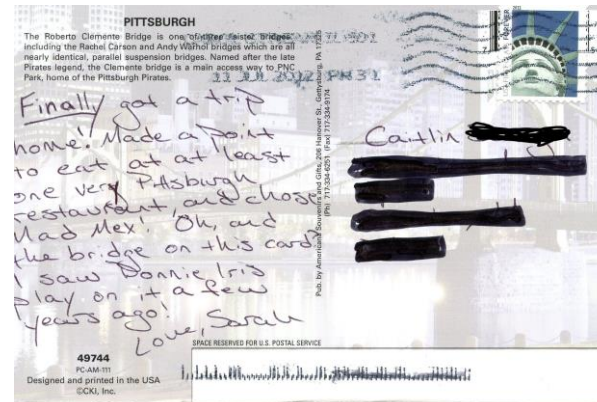 PITTSBURGH
The Roberto Clemente Bridge is one of three "sister bridges,"
including the Rachel Carson and Andy Warhol bridges which are all
nearly identical, parallel suspension bridges. Named after the late
Pirates legend, the Clemente bridge is a main access way to PNC
Park, home of the Pittsburgh Pirates.
JUL 2012 PM 3 L
Finally got a trip
home! Made a point
to eat at at least
one very Pittsburgh
restaurant, and chose
Mad Mex! Oh, and
the bridge on this card?
I saw Donnie Iris
play on it a few
years ago!
Love, Sarah
49744
PC-AM-111
Designed and printed in the USA
©CKI, Inc.
Pub. by Americana Souvenirs and Gifts, 206 Hanover St., Gettysburg, PA 17325
(Ph) 717-334-6251 (Fax) 717-334-9174
FOREVER
Caitlin
SPACE RESERVED FOR U.S. POSTAL SERVICE